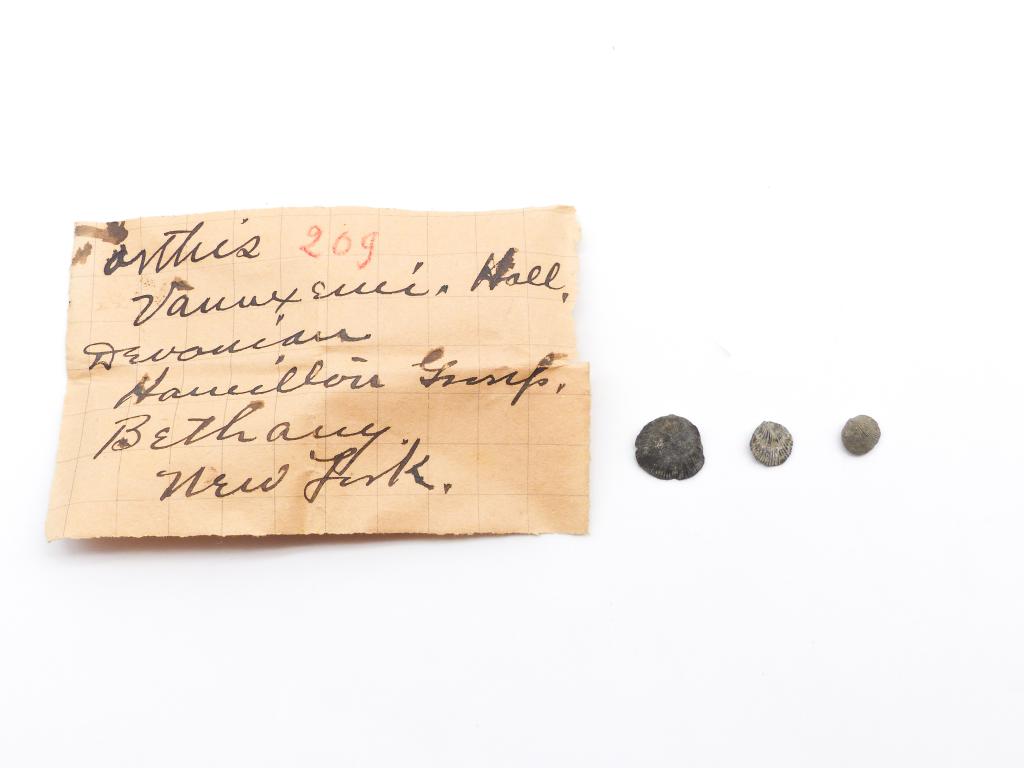 Orthis 209
Vanuxemi. Hall.
Devonian
Hamilton Group.
Bethany.
New York.